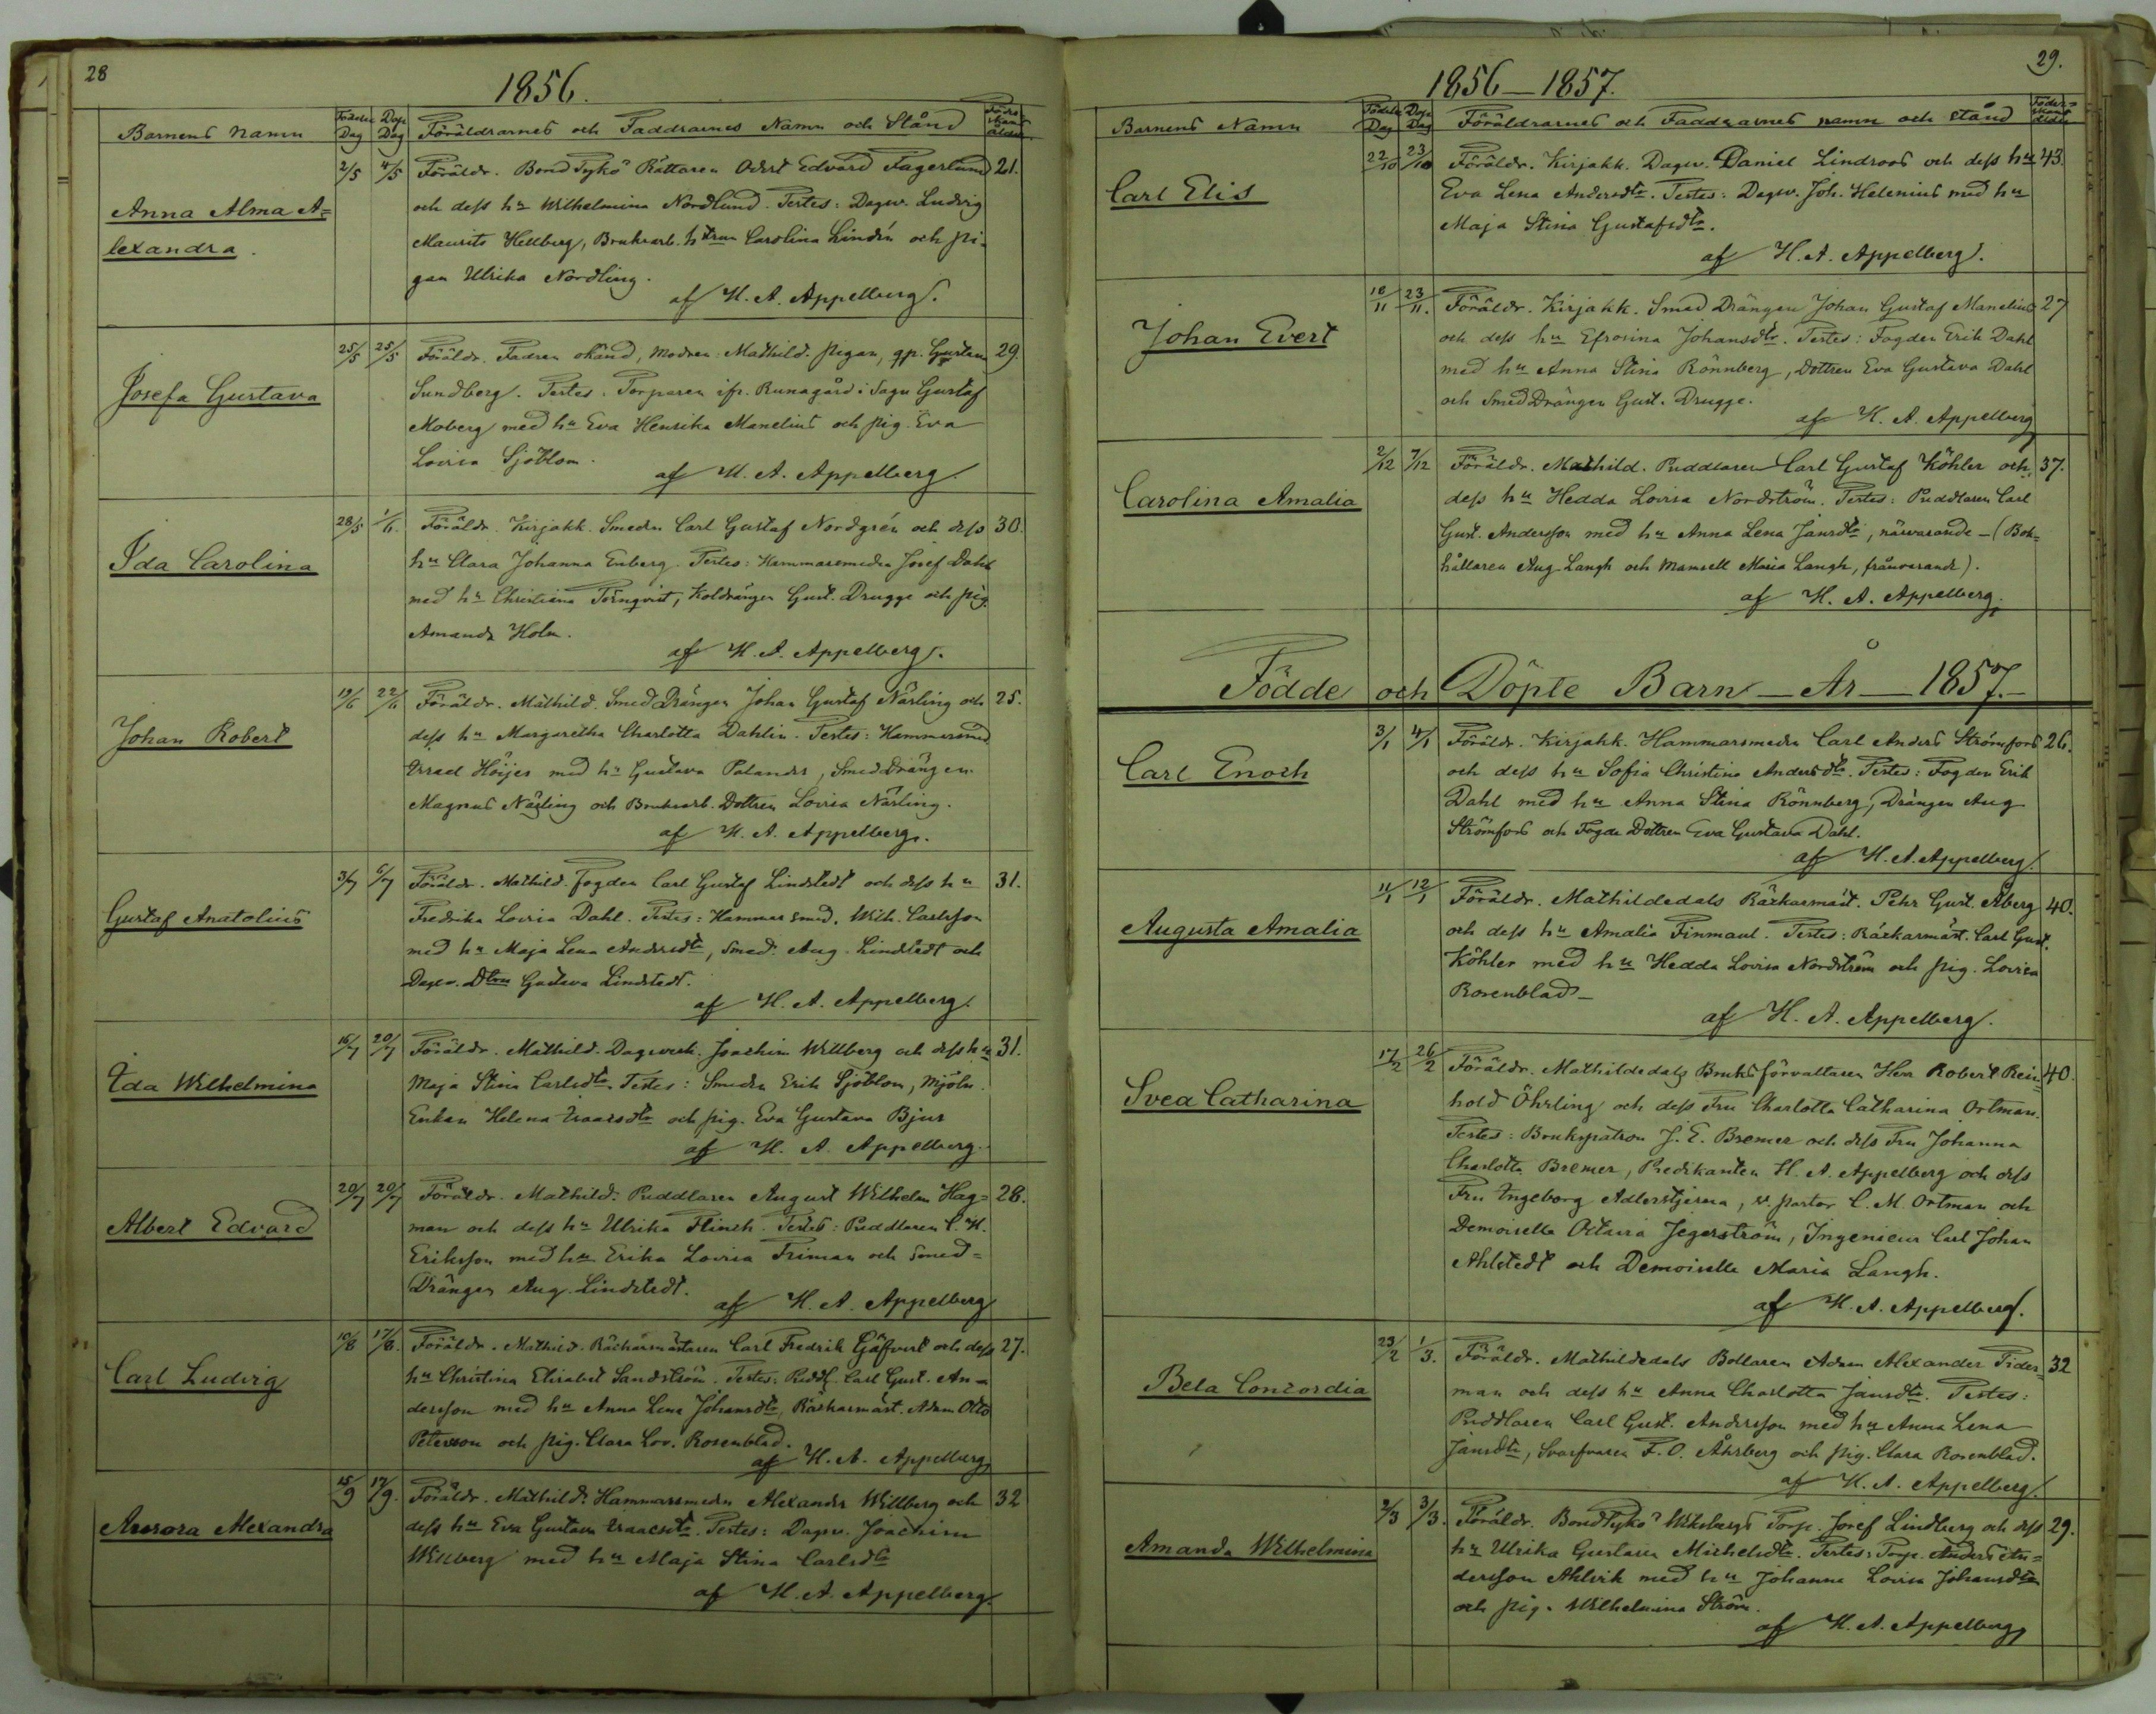 28
1856.
Barnens namn
Födelse Dag
Dop Dag
Föräldrarnes och Faddrarnes Namn och Stånd
Anna Alma A=
lexandra.
2/5 4/5 Föräldr. Bond Tykö Rättaren Edvard Fagerlund 21.
och dess hu Wilhelmina Nordlund. Testes: Dagw. Ludvig
Maurits Hellberg, Bruksarb. htrun Carolina Lindén och pi-
gan Ulrika Nordling.
af H. A. Appelberg.
Josefa Gustava
25/5 25/5 Föräldr. Fadren okänd, modren: Mathild. pigan, Gustava 29.
Sundberg. Testes: Torparen Runagård i Sagu Gustaf
Moberg med hu Eva Henrika Manelius och pig. Eva
Lovisa Sjöblom.
af H. A. Appelberg.
Ida Carolina
28/5 1/6. Föräldr. Kirjakk. Smeden Carl Gustaf Nordgrén och dess 30.
hu Clara Johanna Enberg. Testes: Hammarsmeden Josef Dahl
med hu Christina Törnqvist, Koldrängen Gust. Drugge och pig.
Amanda Holm.
af H. A. Appelberg.
Johan Robert
19/6 22/6 Föräldr. Mathild. Smed Drängen Johan Gustaf Närling och 25.
dess hu Margaretha Charlotta Dahlin. Testes: Hammarsmed
Israel Höijer med hu Gustava Palander, Smed Drängen
Magnus Närling och Bruksarb. Dottren Lovisa Närling.
af H. A. Appelberg.
Gustaf Anatolius
3/7 6/7 Föräldr. Mathild. Fogden Carl Gustaf Lindstedt och dess hu 31.
Fredrika Lovisa Dahl. Testes: Hammarsmed. Wilh. Carlsson
med hu Maja Lena Andersdtr, Smed. Aug. Lindstedt och
Dagw. Dtren Gustava Lindstedt.
af H. A. Appelberg.
Ida Wilhelmina
16/7 20/7 Föräldr. Mathild. Dagsverk. Joachim Willberg och dess hu 31.
Maja Stina Carlsdtr. Testes: Smeden Erik Sjöblom, Mjöln.
Enkan Helena Isaacsdtr och pig. Eva Gustava Bjur
af H. A. Appelberg.
Albert Edvard
20/7 20/7 Föräldr. Mathild. Puddlaren August Wilhelm Hag= 28.
man och dess hu Ulrika Flinck. Testes: Puddlaren C. H.
Eriksson med hu Erika Lovisa Friman och Smed=
Drängen Aug. Lindstedt.
af H. A. Appelberg
Carl Ludvig
10/8 17/8. Föräldr. Mathild. Räckarmästaren Carl Fredrik Gäfvert och dess 27.
hu Christina Elisabet Sandström. Testes: Puddl. Carl Gust. An=
dersson med hu Anna Lena Johansdtr, Räckarmäst. Adam Otto
Peterson och pig. Clara Lov. Rosenblad.
af H. A. Appelberg
Aurora Alexandra
15/9 17/9. Föräldr. Mathild. Hammarsmeden Alexander Willberg och 32
dess hu Eva Gustava Isaacsdtr. Testes: Dagsv. Joachim
Willberg med hu Maja Stina Carlsdtr
af H. A. Appelberg.
29.
1856—1857.
Barnens Namn
Födelse Dag
Dop Dag
Föräldrarnes och Faddrarnes namn och stånd
Carl Elis
22/10 23/10 Föräldr. Kirjakk. Dagsv. Daniel Lindroos och dess hu 43.
Eva Lena Andersdtr. Testes: Dagsv. Joh. Helenius med hu
Maja Stina Gustafsdtr.
af H. A. Appelberg.
Johan Evert
18/11 23/11. Föräldr. Kirjakk. Smed Drängen Johan Gustaf Manelius 27
och dess hu Efrosina Johansdtr. Testes: Fogden Erik Dahl
med hu Anna Stina Rönnberg, Dottren Eva Gustava Dahl
och Smed Drängen Gust. Drugge.
af H. A. Appelberg
Carolina Amalia
2/12 7/12 Föräldr. Mathild. Puddlaren Carl Gustaf Köhler och 37.
dess hu Hedda Lovisa Nordström. Testes: Puddlaren Carl
Gust. Andersson med hu Anna Lena Jansdtr, närvarande – (Bok=
hållaren Aug. Langh och Mamsell Maria Langh, frånvarande).
af H. A. Appelberg.
Födde och Döpte Barn — År — 1857.—
Carl Enoch
3/1 4/1 Föräldr. Kirjakk. Hammarsmeden Carl Anders Strömfors 26.
och dess hu Sofia Christina Andersdtr. Testes: Fogden Erik
Dahl med hu Anna Stina Rönnberg, Drängen Aug
Strömfors och Fogde Dottren Eva Gustava Dahl.
af H. A. Appelberg.
Augusta Amalia
11/1 12/1 Föräldr. Mathildedals Räckarmäst. Pehr Gust. Åberg 40.
och dess hu Amalia Finmanl. Testes: Räckarmäst. Carl Gust.
Köhler med hu Hedda Lovisa Nordström och pig. Lovisa
Rosenblad–
af H. A. Appelberg.
Svea Catharina
17/2 26/2 Föräldr. Mathildedals Bruksförvaltaren Herr Robert Rein= 40.
hold Öhrling och dess Fru Charlotta Catharina Ortman.
Testes: Brukspatron J. E. Bremer och dess Fru Johanna
Charlotta Bremer, Predikanten H. A. Appelberg och dess
Fru Ingeborg Adlerstjerna, v. pastor C. M. Ortman och
Demoiselle Octavia Jegerström, Ingenieur Carl Johan
Ahlstedt och Demoiselle Maria Langh.
af H. A. Appelberg.
Beta Concordia
23/2 1/3. Föräldr. Mathildedals Bollaren Adam Alexander Tider= 32
man och dess hu Anna Charlotta Jansdtr. Testes:
Puddlaren Carl Gust. Andersson med hu Anna Lena
Jansdtr, Svarfvaren F. O. Åhrberg och pig. Clara Rosenblad.
af H. A. Appelberg.
Amanda Wilhelmina
2/3 3/3. Föräldr. Bond Tykö Wiksbergs Torp. Josef Lindberg och dess 29.
hu Ulrika Gustava Michelsdtr. Testes: Torp. Anders An=
dersson Ahlvik med hu Johanna Lovisa Johansdtr
och pig. Wilhelmina Ström.
af H. A. Appelberg